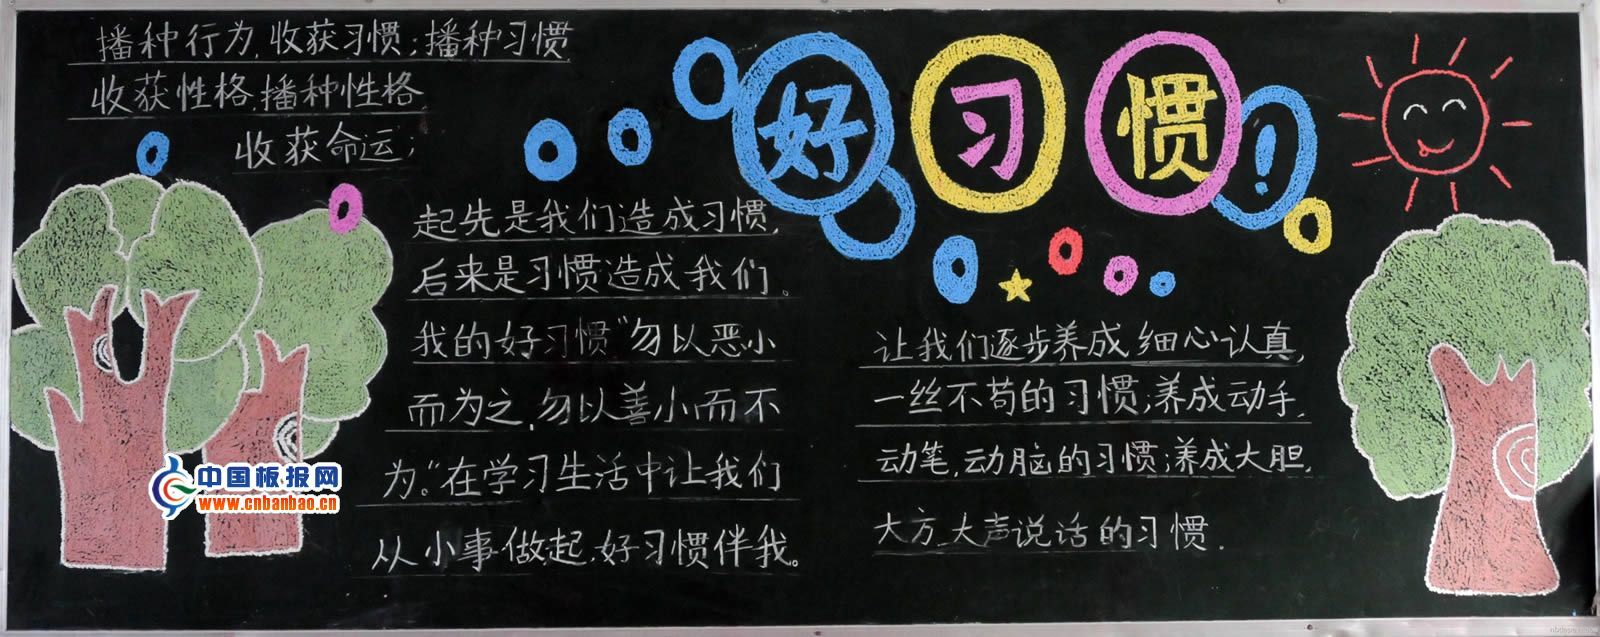 播种行为,收获习惯;播种习惯
收获性格,播种性格
收获命运;
好习惯!
起先是我们造成习惯,
后来是习惯造成我们。
我的好习惯"勿以恶小
而为之,勿以善小而不
为。"在学习生活中让我们
从小事做起,好习惯伴我。
让我们逐步养成细心认真,
一丝不苟的习惯;养成动手,
动笔,动脑的习惯;养成大胆,
大方,大声说话的习惯.
中国板报网
www.cnbanbao.cn